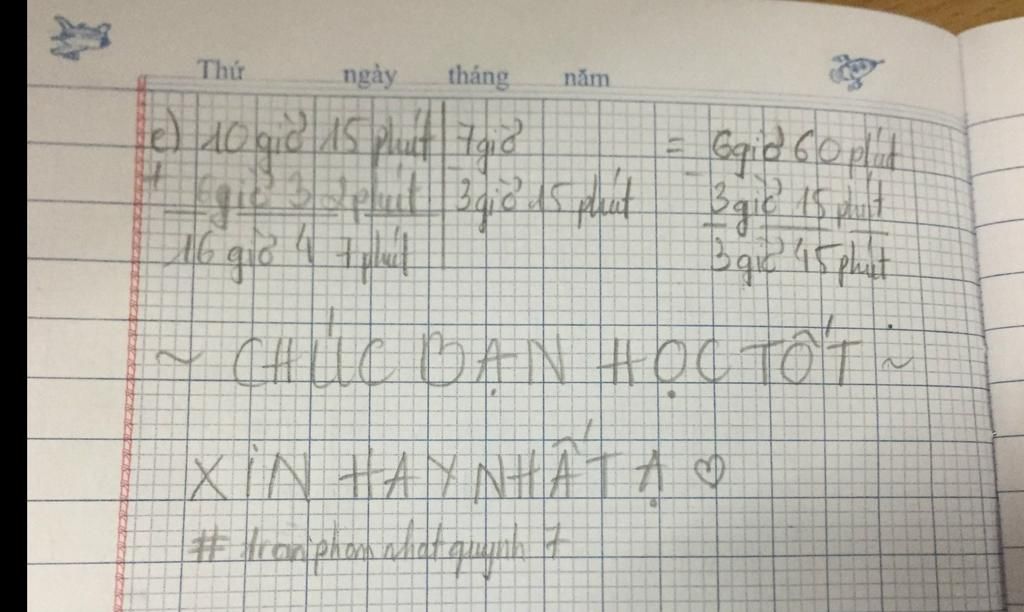 Thứ ngày tháng năm
c) 10 giờ 15 phút 7giờ = 6giờ 60 phút
+ 6giờ 32phút 3giờ 15 phút - 3giờ 15 phút
16 giờ 47phút 3giờ 45 phút
~ CHÚC BẠN HỌC TỐT ~
XIN HAY NHẤT Ạ ♡
# tranphamnhatquynh7